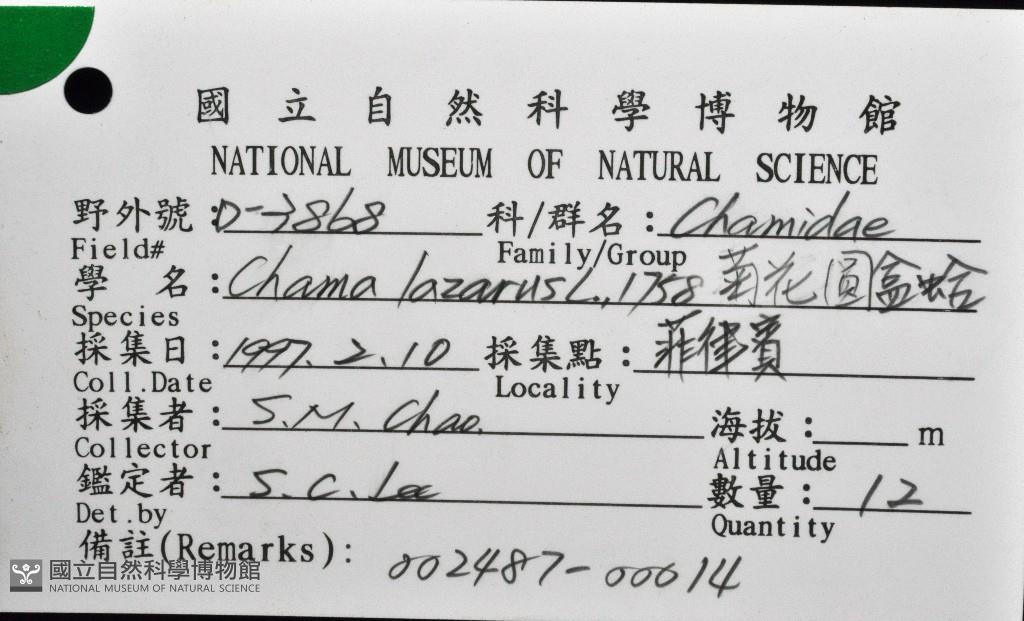 國立自然科學博物館
NATIONAL MUSEUM OF NATURAL SCIENCE
野外號：D-3868 科/群名：Chamidae
Field# Family/Group
學 名：Chama lazarus L., 1758 菊花圓盒蛤
Species
採集日：1997. 2. 10 採集點：菲律賓
Coll.Date Locality
採集者：S.M. Chao. 海拔：____ m
Collector Altitude
鑑定者：S. C. Lee 數量：12
Det.by Quantity
備註(Remarks)： 002487-00014
國立自然科學博物館
NATIONAL MUSEUM OF NATURAL SCIENCE